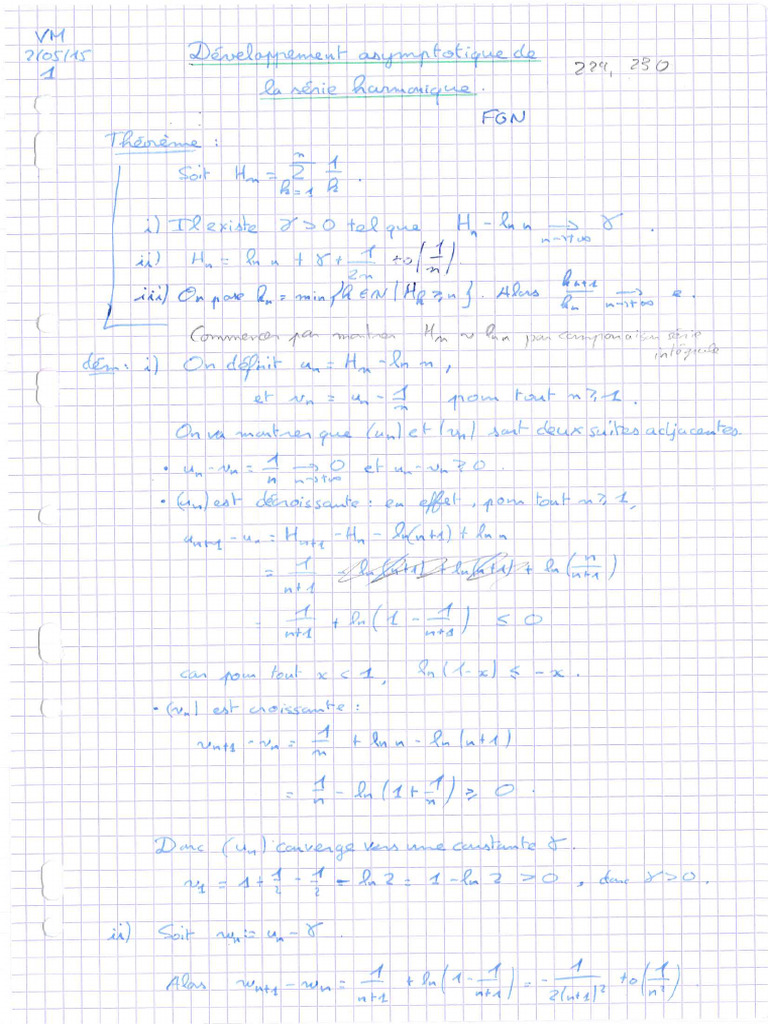 VM
2/05/15
1
Développement asymptotique de
la série harmonique.
229, 230
FGN
Théorème :
Soit Hₙ = ∑ₖ₌₁ⁿ 1/k .
i) Il existe γ > 0 tel que Hₙ - ln n ⟶ₙ→+∞ γ .
ii) Hₙ = ln n + γ + 1/2n + o(1/n)
iii) On pose kₙ = min{k ∈ N | Hₖ ⩾ n}. Alors kₙ₊₁/kₙ ⟶ₙ→+∞ e.
Commencer par montrer Hₙ ~ ln n par comparaison série
intégrale
dém : i) On définit uₙ = Hₙ - ln n,
et vₙ = uₙ - 1/n pour tout n ⩾ 1.
On va montrer que (uₙ) et (vₙ) sont deux suites adjacentes.
• uₙ - vₙ = 1/n ⟶ₙ→+∞ 0 et uₙ - vₙ ⩾ 0.
• (uₙ) est décroissante : en effet, pour tout n ⩾ 1,
uₙ₊₁ - uₙ = Hₙ₊₁ - Hₙ - ln(n+1) + ln n
= 1/(n+1) + ln(n/(n+1))
= 1/(n+1) + ln(1 - 1/(n+1)) ⩽ 0
car pour tout x < 1, ln(1-x) ⩽ -x.
• (vₙ) est croissante :
vₙ₊₁ - vₙ = 1/n + ln n - ln(n+1)
= 1/n - ln(1 + 1/n) ⩾ 0.
Donc (uₙ) converge vers une constante γ.
v₁ = 1 + 1/2 - 1/2 - ln 2 = 1 - ln 2 > 0, donc γ > 0.
ii) Soit wₙ := uₙ - γ.
Alors wₙ₊₁ - wₙ = 1/(n+1) + ln(1 - 1/(n+1)) = - 1/(2(n+1)²) + o(1/n²)